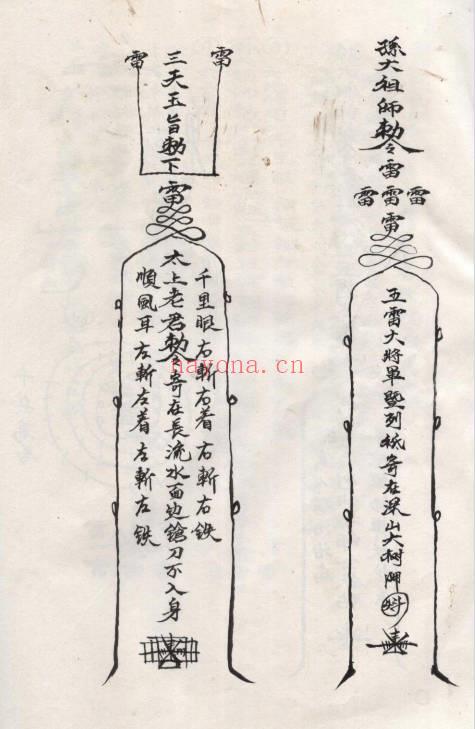 孫大祖師勅令雷
雷雷雷
雷
五雷大將軍暨列祗寄在深山大樹門
雷 雷
三天玉旨勅下
雷
千里眼右斬右着右斬右鉄
太上老君勅令寄在長流水面边鎗刀不入身
順風耳左斬左着左斬左鉄
nayona.cn